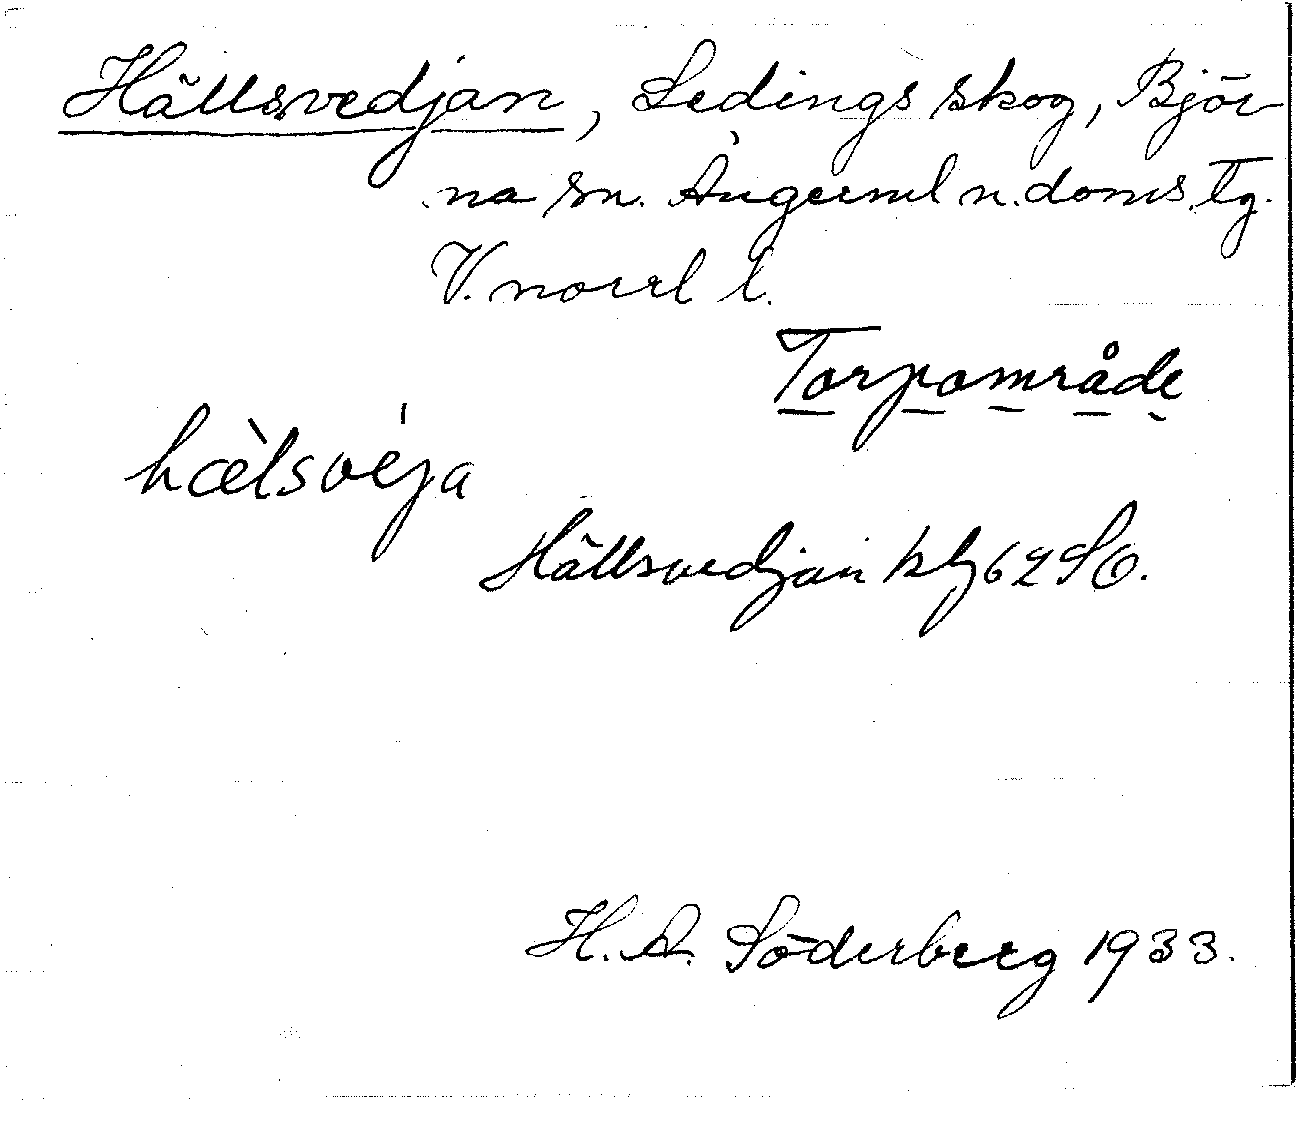 Hällsvedjan, Ledings skog, Björ-
na sn. Ångerml n. doms. Tg.
V. norrl l.
Torpområde
hæ̀lsvéja
Hällsvedjan kbl 62 SO.
H. A. Söderberg 1933.